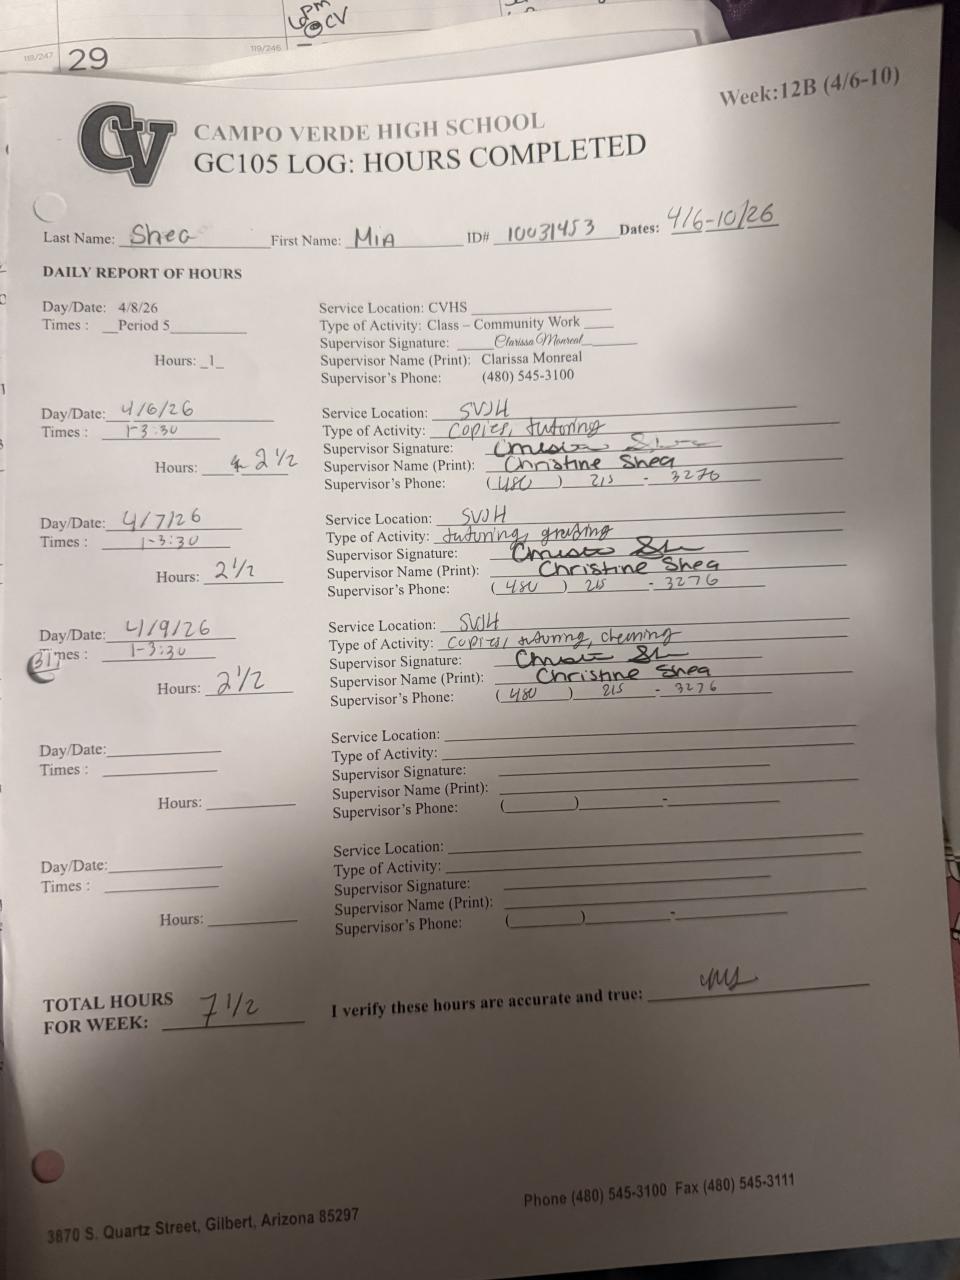 6pm
@CV
118/247
29
119/246
Week:12B (4/6-10)
CV
CAMPO VERDE HIGH SCHOOL
GC105 LOG: HOURS COMPLETED
Last Name: Shea First Name: MIA ID# 10031453 Dates: 4/6-10/26
DAILY REPORT OF HOURS
Day/Date: 4/8/26
Times : Period 5
Hours: 1
Service Location: CVHS
Type of Activity: Class – Community Work
Supervisor Signature: Clarissa Monreal
Supervisor Name (Print): Clarissa Monreal
Supervisor's Phone: (480) 545-3100
Day/Date: 4/6/26
Times : 1-3:30
Hours: 2 1/2
Service Location: SVJH
Type of Activity: copies, tutoring
Supervisor Signature:
Supervisor Name (Print): Christine Shea
Supervisor's Phone: (480) 215 - 3276
Day/Date: 4/7/26
Times : 1-3:30
Hours: 2 1/2
Service Location: SVJH
Type of Activity: tutoring, grading
Supervisor Signature:
Supervisor Name (Print): Christine Shea
Supervisor's Phone: (480) 215 - 3276
Day/Date: 4/9/26
Times : 1-3:30
Hours: 2 1/2
Service Location: SVJH
Type of Activity: copies, tutoring,
Supervisor Signature:
Supervisor Name (Print): Christine Shea
Supervisor's Phone: (480) 215 - 3276
Day/Date:
Times :
Hours:
Service Location:
Type of Activity:
Supervisor Signature:
Supervisor Name (Print):
Supervisor's Phone: ( ) -
Day/Date:
Times :
Hours:
Service Location:
Type of Activity:
Supervisor Signature:
Supervisor Name (Print):
Supervisor's Phone: ( ) -
TOTAL HOURS
FOR WEEK: 7 1/2
I verify these hours are accurate and true:
3870 S. Quartz Street, Gilbert, Arizona 85297
Phone (480) 545-3100 Fax (480) 545-3111